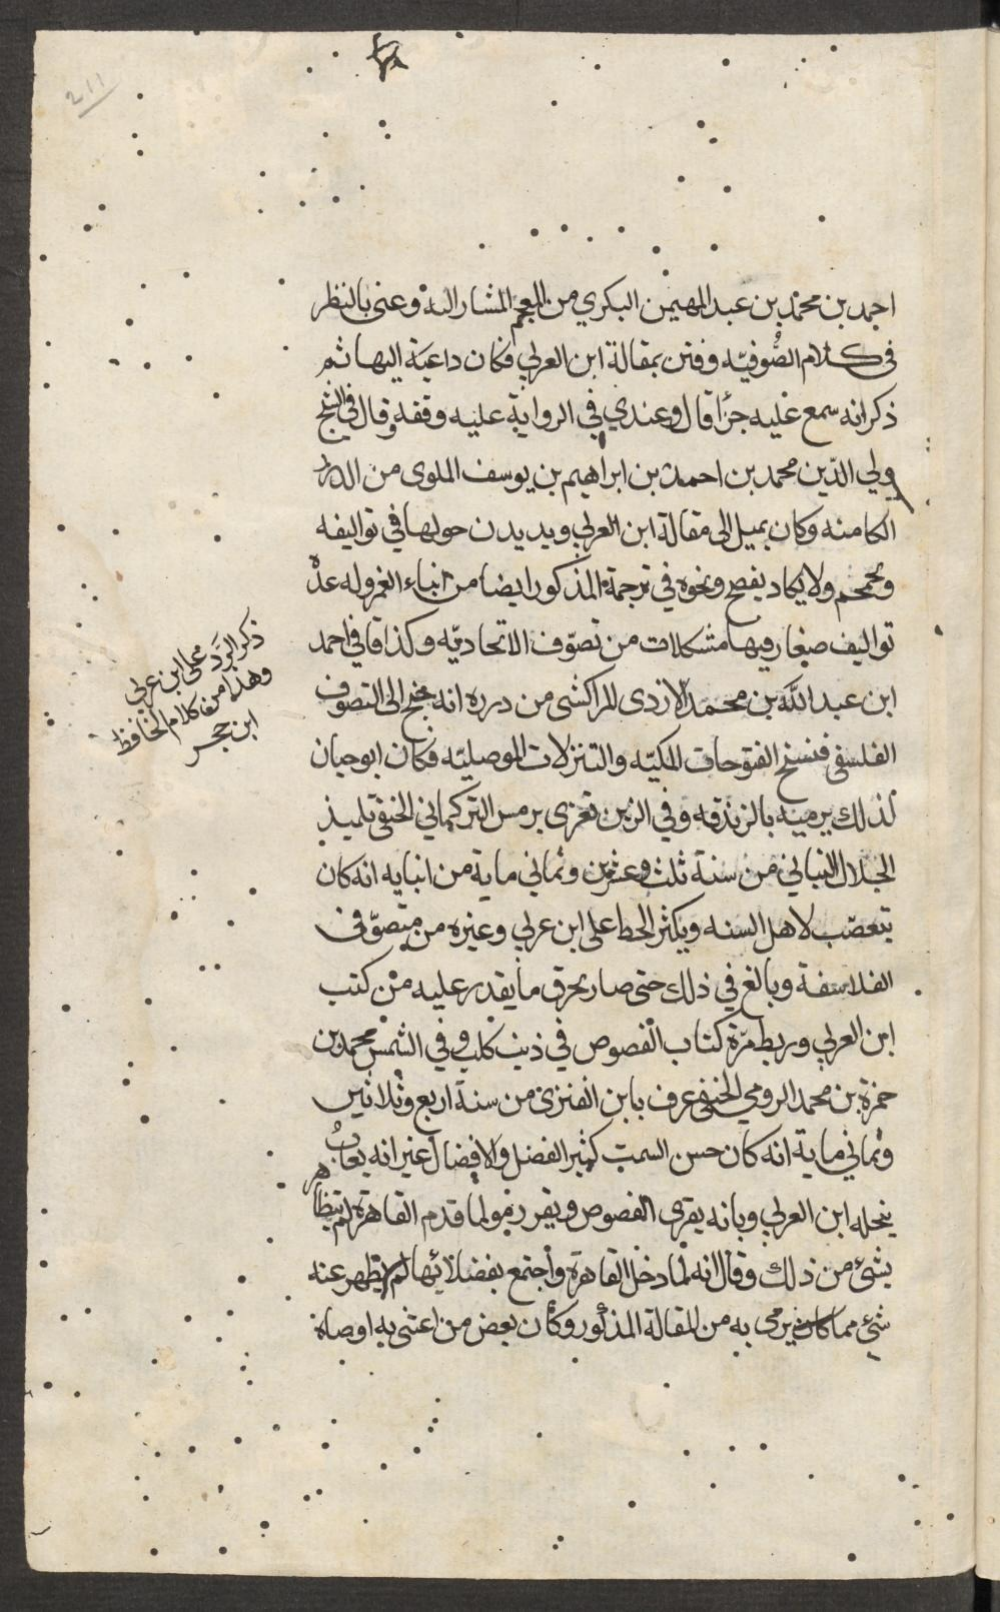 ٢١١
احمد بن محمد بن عبد المهيمن البكري من المعجم المشار اليه وعنى بالنظر
فى كلام الصوفيه وفتن بمقالة ابن العربي فكان داعية اليها ثم
ذكر انه سمع عليه جزأ قال وعندي في الرواية عليه وقفه وقال في الشيخ
ولي الدين محمد بن احمد بن ابراهيم بن يوسف الملوى من الدرر
الكامنه وكان يميل الى مقالة ابن العربي ويديدن حولها في تواليفه
ويحمحم ولا يكاد يفصح ونحوه في ترجمة المذكور ايضا من انباء الغمر وله عدة
تواليف صغار فيها مشكلات من تصوّف الاتحاديّه وكذا قا في احمد
ابن عبد الله بن محمد الازدى المراكشى من درره انه جنح الى التصوف
الفلسفى فنسخ الفتوحات المكيّه والتنزلات الموصليّه فكان ابو حيان
لذلك يرميه بالزندقه وفي الزين تغرى برمس التركماني الحنفي تلميذ
الجلال التباني من سنة ثلث وعشرين وثماني ماية من انبايه انه كان
يتعصّب لاهل السنه ويكثر الحط على ابن عربي وغيره من متصوّفى
الفلاسفة وبالغ في ذلك حتى صار يحرق ما يقدر عليه من كتب
ابن العربي وربط مرّة كتاب الفصوص في ذنب كلب وفي الشمس محمد بن
حمزة بن محمد الرومي الحنفي عرف بابن الفنرى من سنة اربع وثلاثين
وثماني ماية انه كان حسن السمت كثير الفضل والافضال غير انه يعاب
بنحله ابن العربي وبانه يقرى الفصوص ويقرره ولما قدم القاهرة لم يتظاهر
بشئ من ذلك وقال انه لما دخل القاهرة واجتمع بفضلائها لم يظهر عنه
شئ مما كان يرمى به من المقالة المذكور وكأن بعض من اعتنى به اوصاه
ذكر الرد على ابن عربي
وهذا من كلام الحافظ
ابن حجر